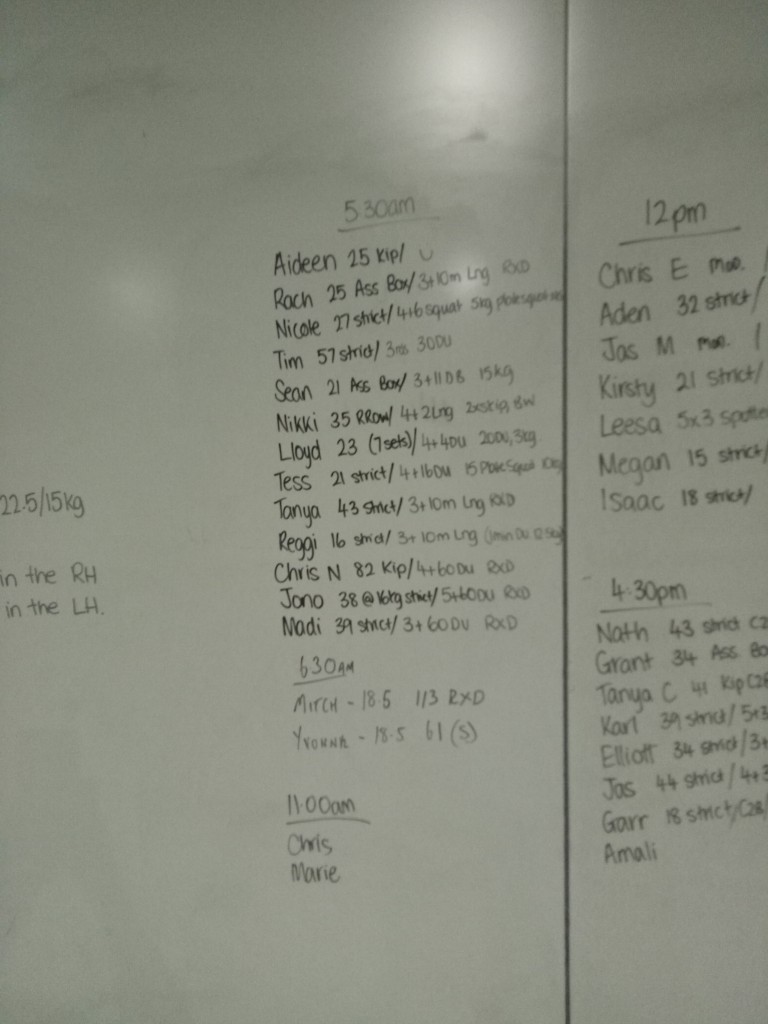 22.5/15kg
in the RH
in the LH.
5:30am
Aideen 25 Kip/
Rach 25 Ass Box/ 3+10m Lng RXD
Nicole 27 strict/ 4+6 squat 5kg
Tim 57 strict/ 30DU
Sean 21 Ass Box/ 3+11 DB 15kg
Nikki 35 RRow/ 4+2Lng BW
Lloyd 23 (7sets)/ 4+4DU 20DU, 5kg
Tess 21 strict/ 4+16DU 15 Squat 10kg
Tanya 43 strict/ 3+10m Lng RXD
Reggi 16 strict/ 3+10m Lng (1min DU
Chris N 82 Kip/ 4+60DU RXD
Jono 38 @ 16kg strict/ 5+60DU RXD
Madi 39 strict/ 3+60DU RXD
630AM
MITCH - 18.5 113 RXD
- 18.5 61 (S)
11:00am
Chris
Marie
12pm
Chris E mod.
Aden 32 strict/
Jas M mod.
Kirsty 21 strict/
Leesa 5x3 spotte
Megan 15 strict/
Isaac 18 strict/
4:30pm
Nath 43 strict C2
Grant 34 Ass Bo
Tanya C 41 Kip C2B
Karl 39 strict/ 5+3
Elliott 34 strict/ 3+
Jas 44 strict/ 4+3
Garr 18 strict/C2B/
Amali